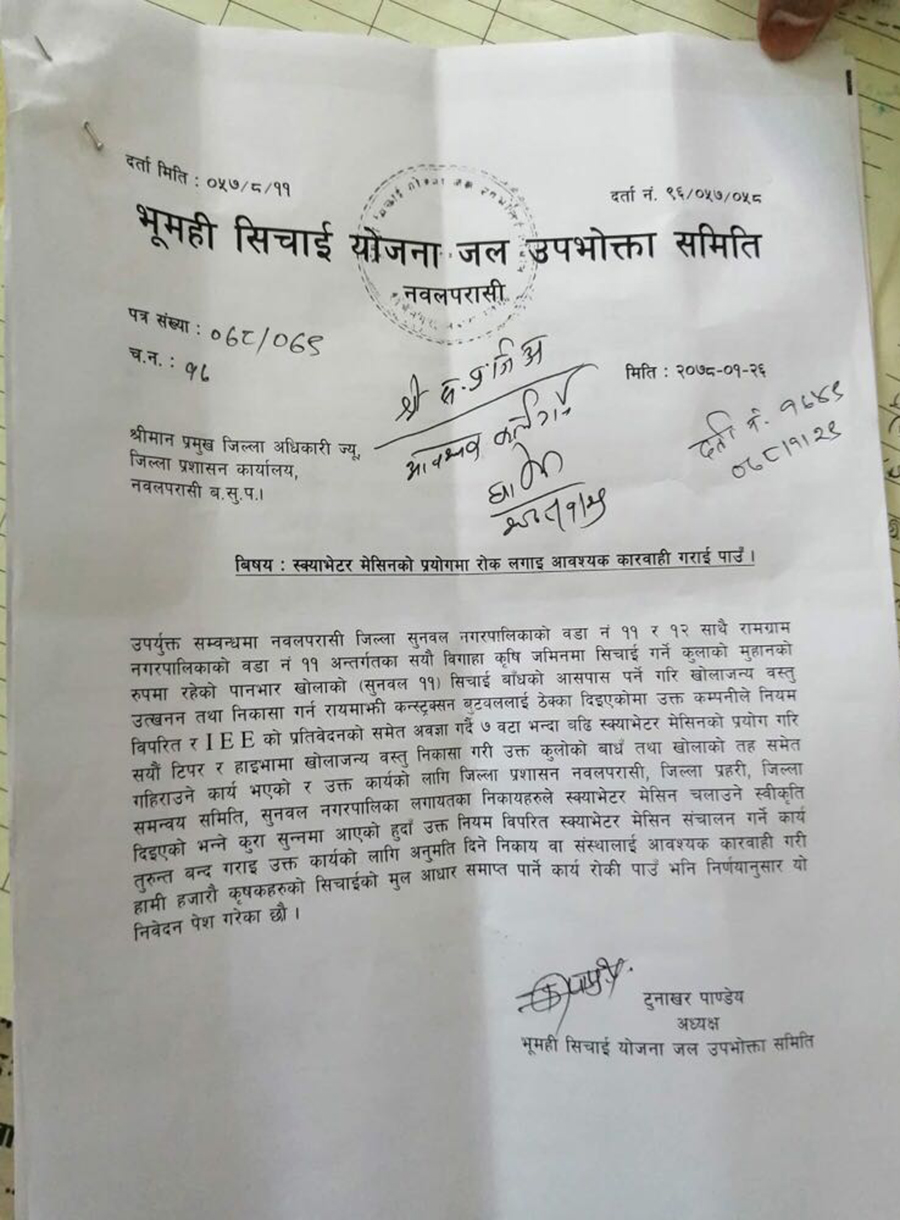 दर्ता मिति : ०५७/८/११
दर्ता नं. ९६/०५७/०५८
भूमही सिचाई योजना जल उपभोक्ता समिति
नवलपरासी
पत्र संख्या : ०७८/०७९
च.न. : १८
मिति : २०७८-०१-२६
श्री स.प्र.जि.अ
आवश्यक
दर्ता नं.
श्रीमान प्रमुख जिल्ला अधिकारी ज्यू,
जिल्ला प्रशासन कार्यालय,
नवलपरासी ब.सु.प.।
बिषय : स्क्याभेटर मेसिनको प्रयोगमा रोक लगाइ आवश्यक कारवाही गराई पाउँ ।
उपर्युक्त सम्वन्धमा नवलपरासी जिल्ला सुनवल नगरपालिकाको वडा नं ११ र १२ साथै रामग्राम
नगरपालिकाको वडा नं ११ अन्तर्गतका सयौ विगाहा कृषि जमिनमा सिचाई गर्ने कुलाको मुहानको
रुपमा रहेको पानभार खोलाको (सुनवल ११) सिचाई बाँधको आसपास पर्ने गरि खोलाजन्य वस्तु
उत्खनन तथा निकासा गर्न रायमाझी कन्स्ट्रक्सन बुटवललाई ठेक्का दिइएकोमा उक्त कम्पनीले नियम
विपरित र IEE को प्रतिवेदनको समेत अवज्ञा गर्दै ७ वटा भन्दा बढि स्क्याभेटर मेसिनको प्रयोग गरि
सयौं टिपर र हाइभामा खोलाजन्य वस्तु निकासा गरी उक्त कुलोको बाधँ तथा खोलाको तह समेत
गहिराउने कार्य भएको र उक्त कार्यको लागि जिल्ला प्रशासन नवलपरासी, जिल्ला प्रहरी, जिल्ला
समन्वय समिति, सुनवल नगरपालिका लगायतका निकायहरुले स्क्याभेटर मेसिन चलाउने स्वीकृति
दिइएको भन्ने कुरा सुन्नमा आएको हुदाँ उक्त नियम विपरित स्क्याभेटर मेसिन संचालन गर्ने कार्य
तुरुन्त बन्द गराइ उक्त कार्यको लागि अनुमति दिने निकाय वा संस्थालाई आवश्यक कारवाही गरी
हामी हजारौ कृषकहरुको सिचाईको मुल आधार समाप्त पार्ने कार्य रोकी पाउँ भनि निर्णयानुसार यो
निवेदन पेश गरेका छौ ।
टुनाखर पाण्डेय
अध्यक्ष
भूमही सिचाई योजना जल उपभोक्ता समिति